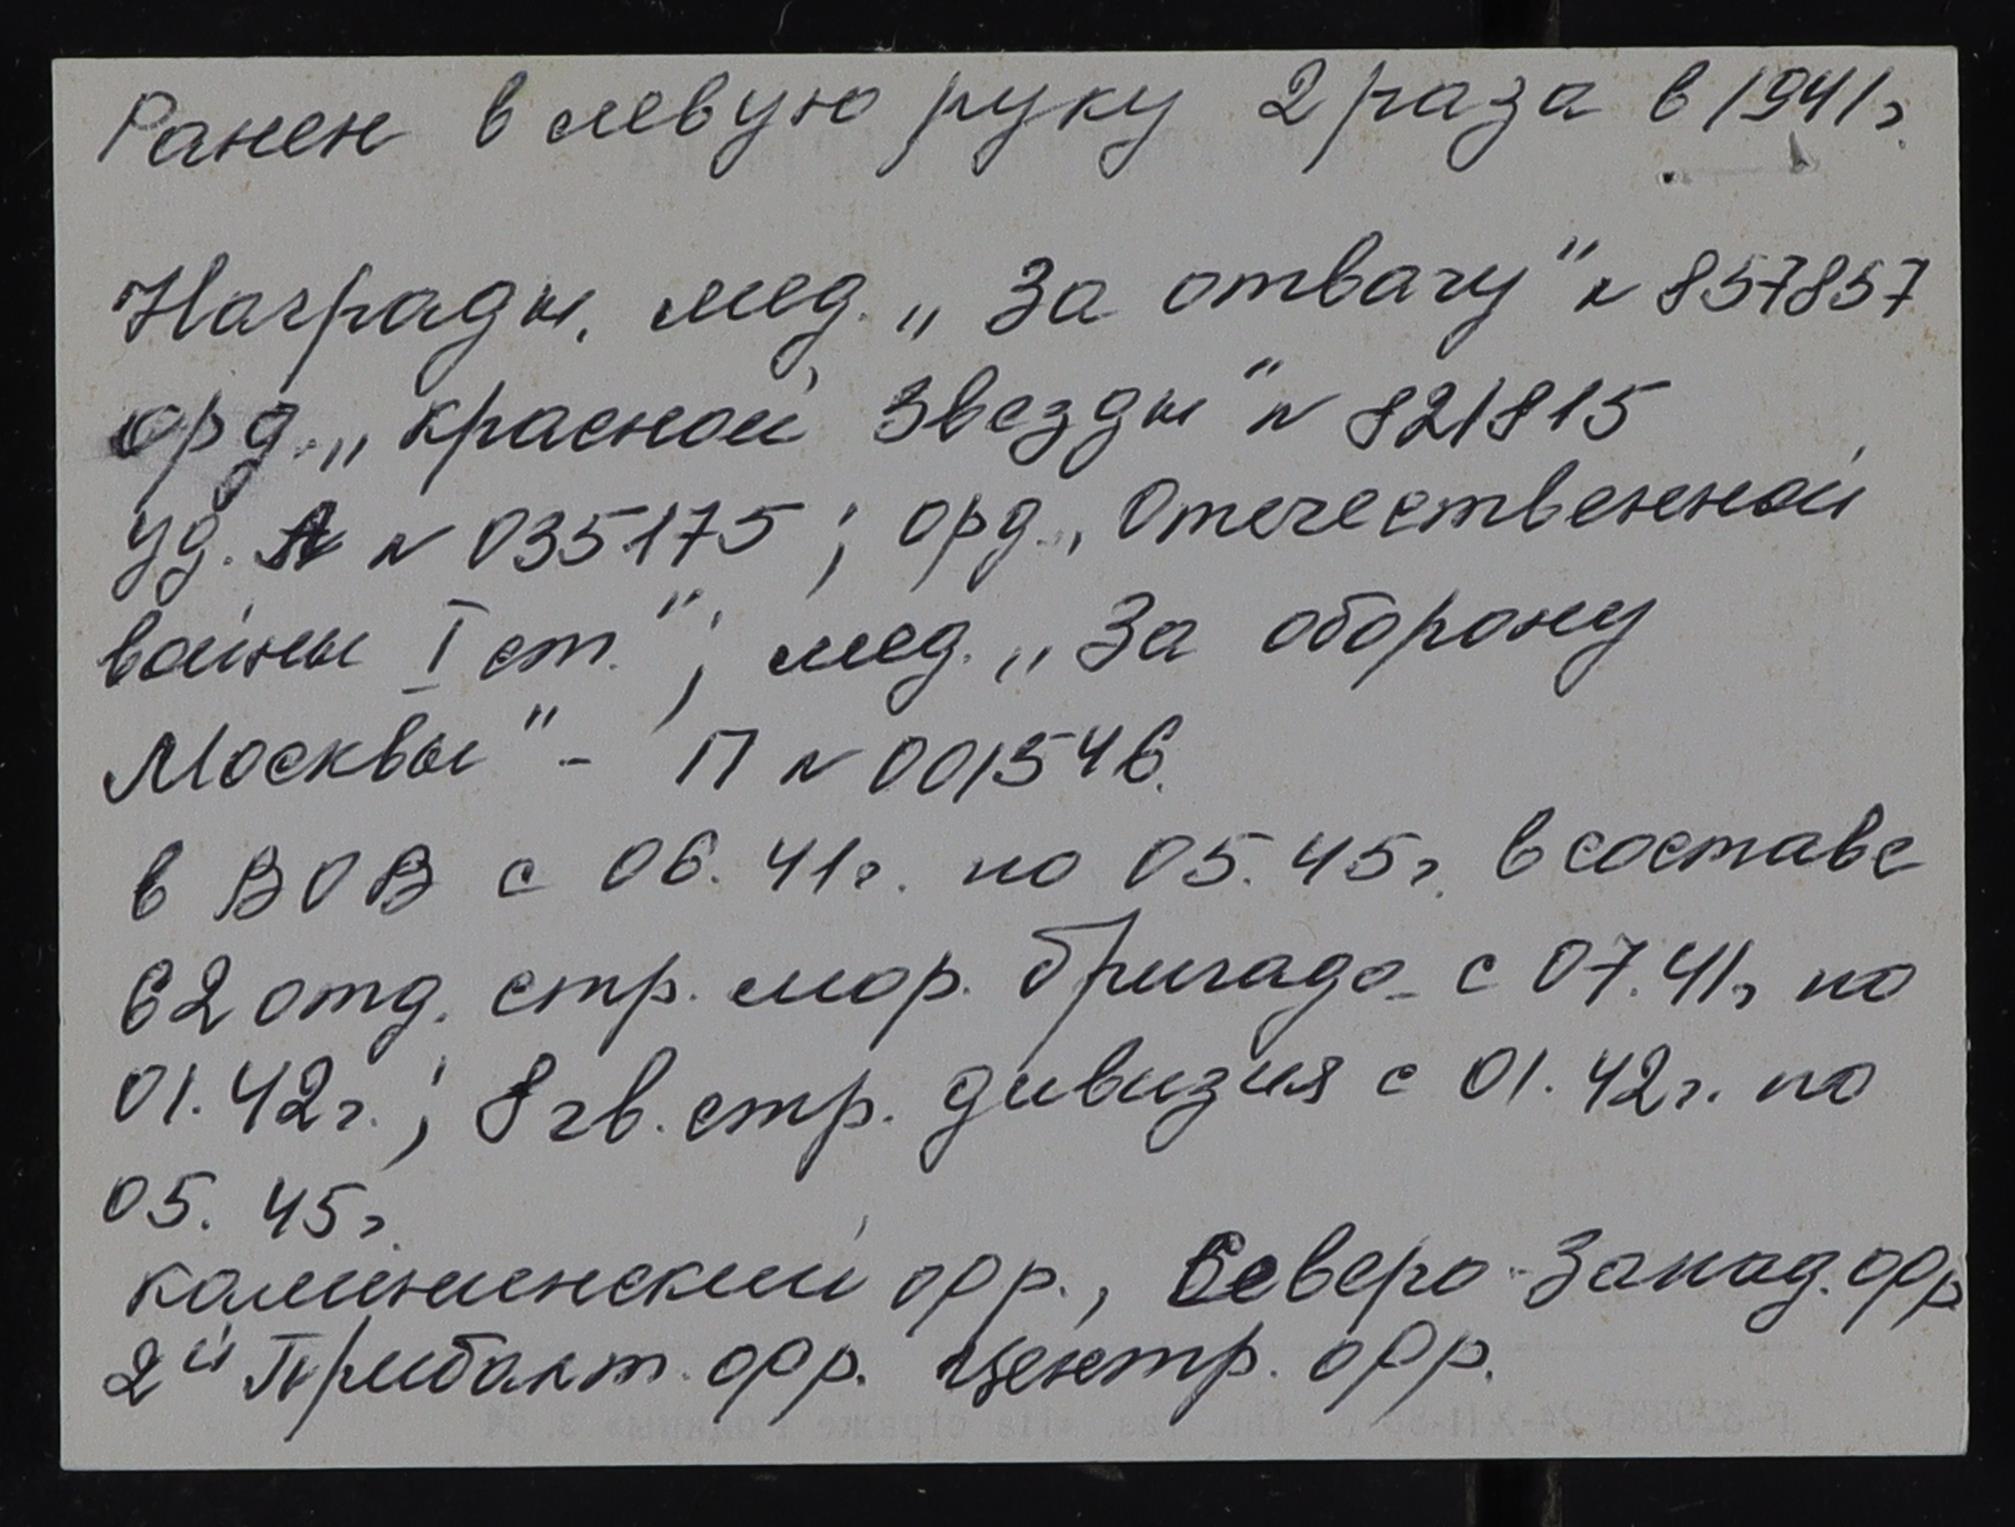 Ранен в левую руку 2 раза в 1941 г.
Награды. мед. „За отвагу" N 857857
орд. „красной Звезды" N 821815
уд. А N 035175; орд. „Отечественной
войны I ст."; мед. „За оборону
Москвы" - П N 001546.
в ВОВ с 06.41г. по 05.45г. в составе
62 отд. стр. мор. бригада с 07.41г. по
01.42г.; 8 гв. стр. дивизия с 01.42г. по
05.45г.
калининский фр., Северо-Запад. фр
2й Прибалт. фр. Центр. фр.